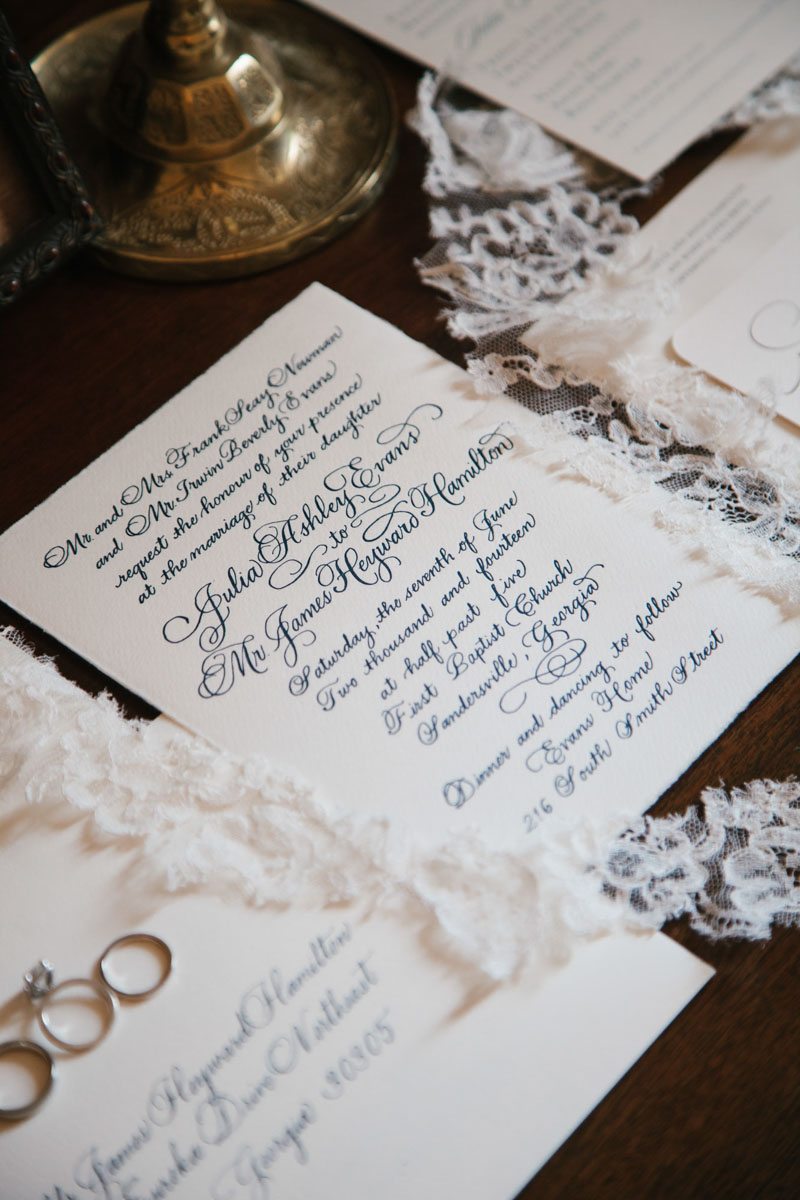 Mr. and Mrs. Frank Seay Newman
and Mr. Irwin Beverly Evans
request the honour of your presence
at the marriage of their daughter
Julia Ashley Evans
to
Mr James Heyward Hamilton
Saturday, the seventh of June
Two thousand and fourteen
at half past five
First Baptist Church
Sandersville, Georgia
Dinner and dancing to follow
Evans Home
216 South Smith Street
Mr James Heyward Hamilton
Drive Northeast
Georgia 30305